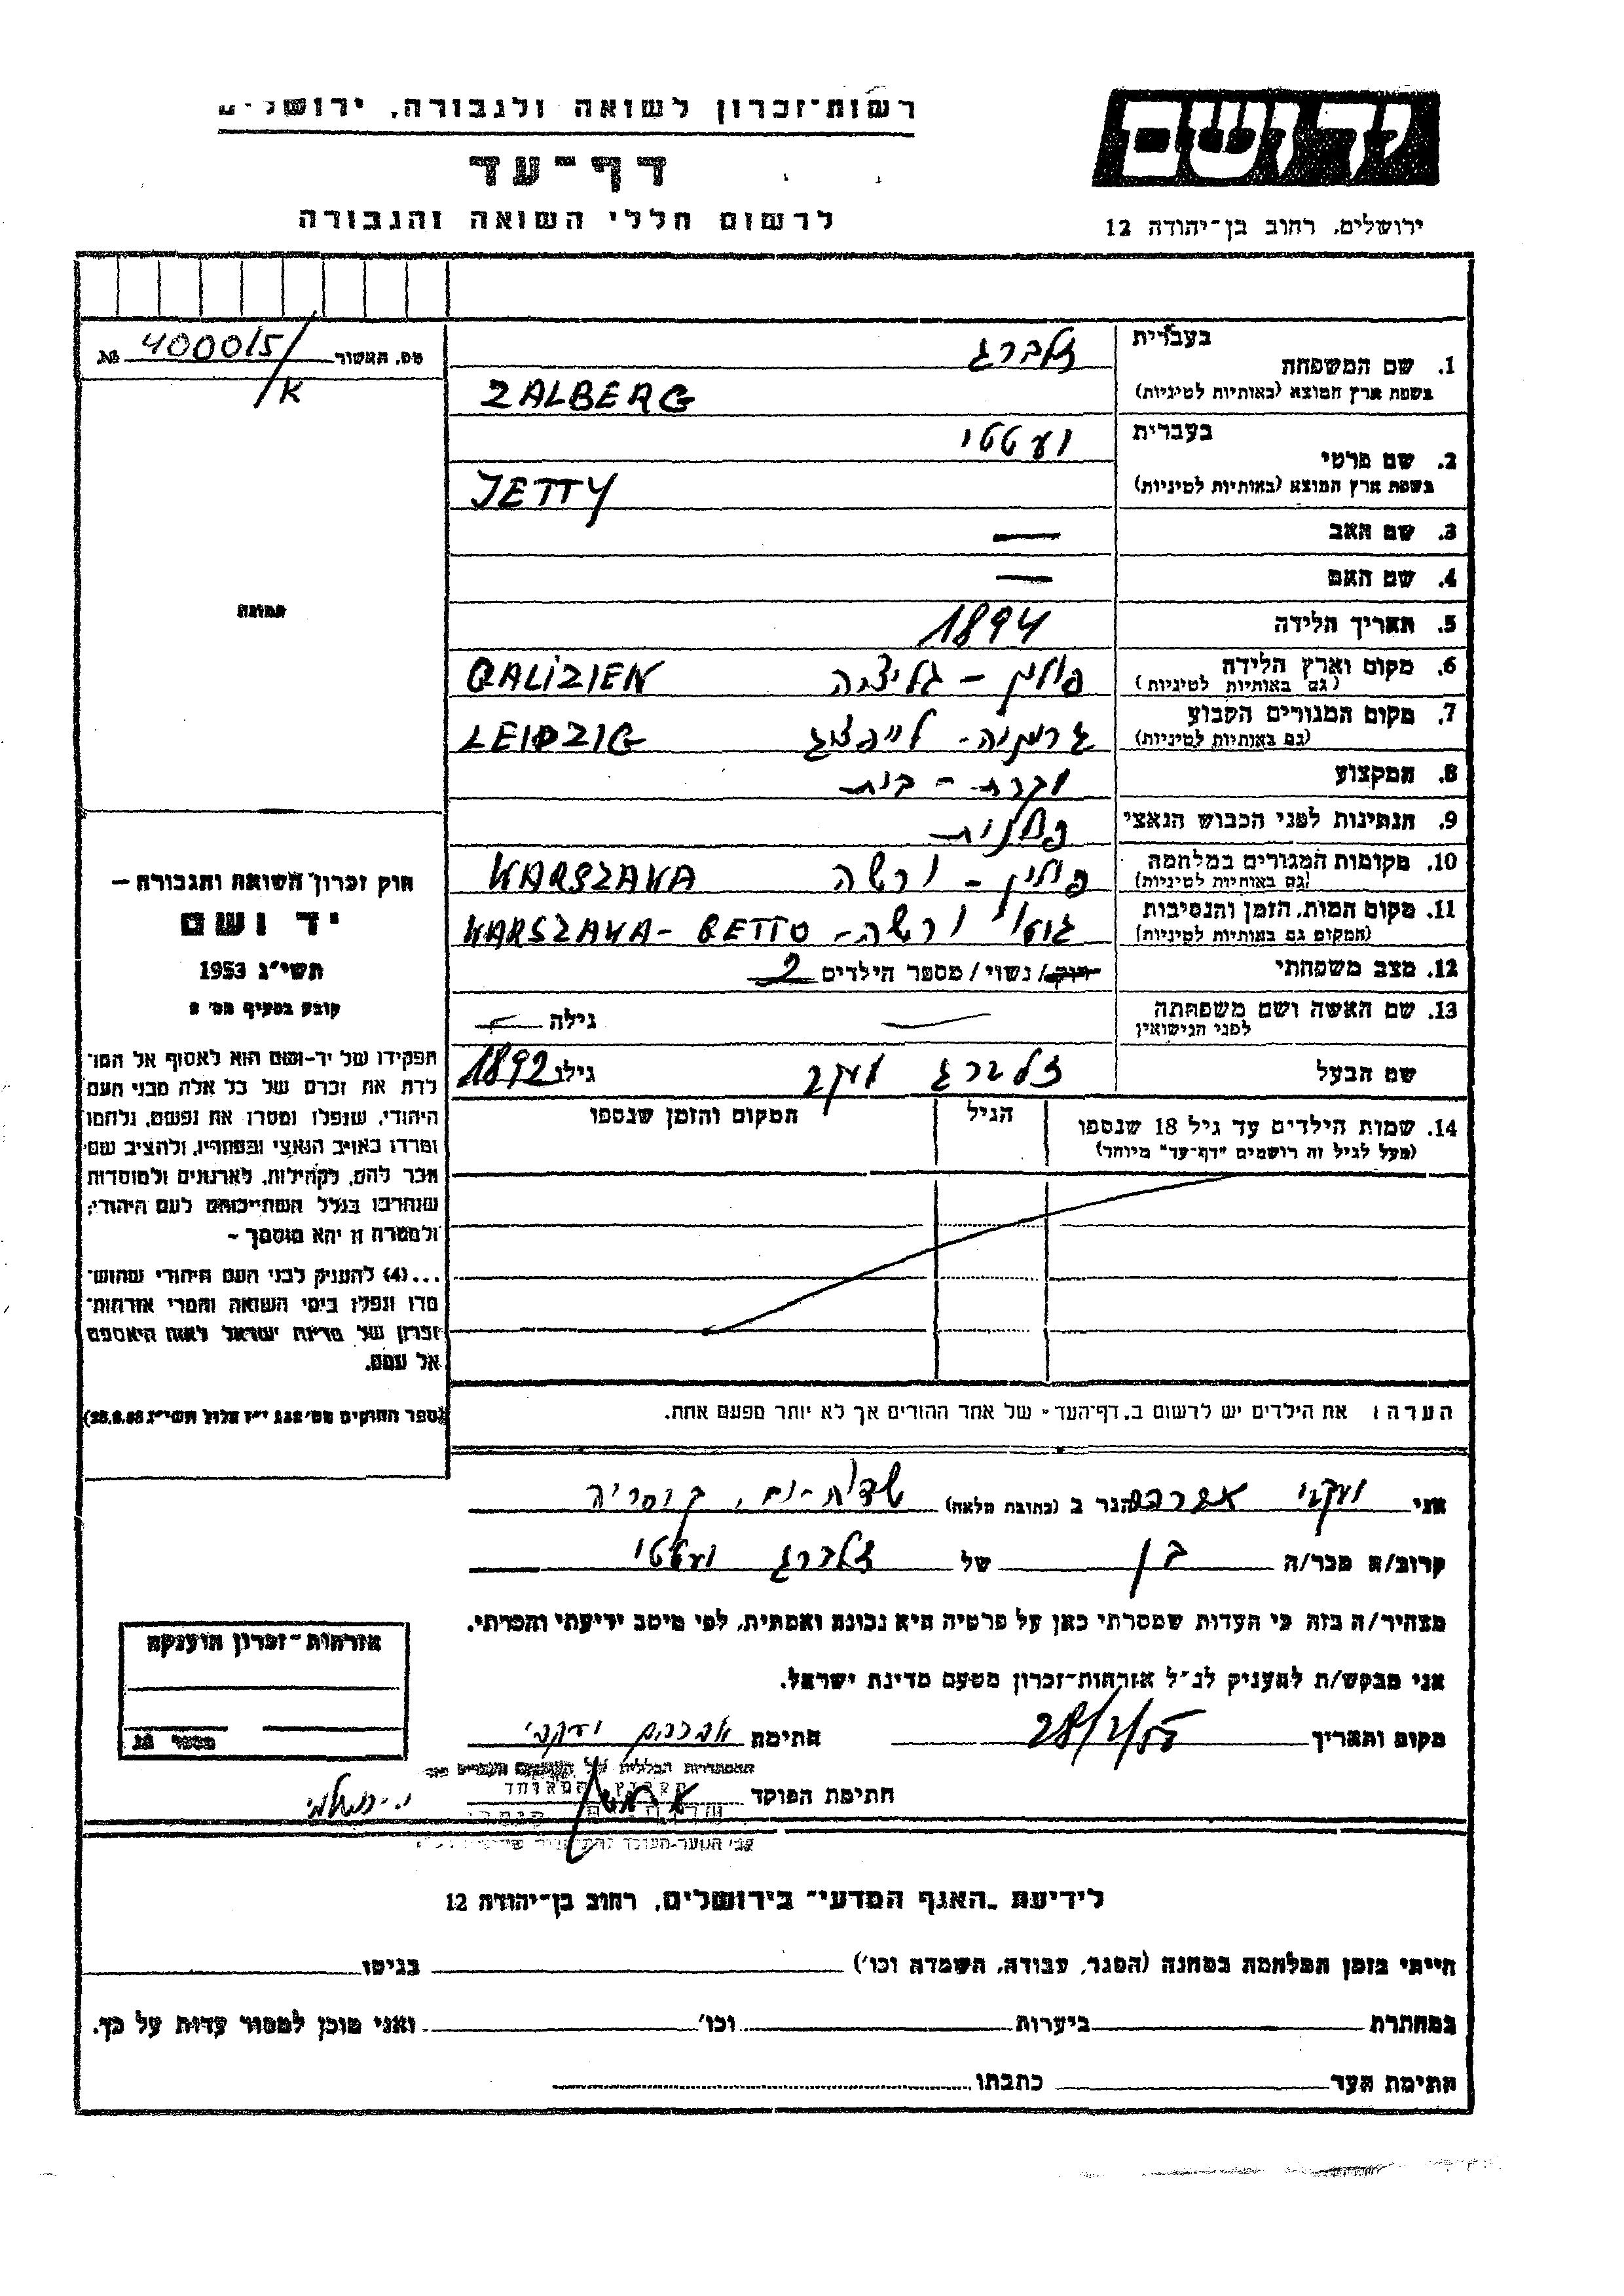 רשות־זכרון לשואה ולגבורה, ירושלים
דף־עד
לרשום חללי השואה והגבורה
יד ושם
ירושלים, רחוב בן־יהודה 12
מס. האשור 40005/ №
א/
בעברית
1. שם המשפחה זלברג
בשפת ארץ המוצא (באותיות לטיניות) ZALBERG
בעברית
2. שם פרטי יעטטי
בשפת ארץ המוצא (באותיות לטיניות) JETTY
3. שם האב —
4. שם האם —
5. תאריך הלידה 1894
6. מקום וארץ הלידה פולין - גליציה GALIZIEN
(גם באותיות לטיניות)
7. מקום המגורים הקבוע גרמניה - לייפציג LEIPZIG
(גם באותיות לטיניות)
8. המקצוע עקרת - בית
9. הנתינות לפני הכבוש הנאצי פולנית
10. מקומות המגורים במלחמה פולין - ורשה WARSZAWA
(גם באותיות לטיניות)
11. מקום המות, הזמן והנסיבות גיטו ורשה - WARSZAWA - GETTO
(המקום גם באותיות לטיניות)
12. מצב משפחתי רווק / נשוי / מספר הילדים 2
13. שם האשה ושם משפחתה — גילה —
לפני הנישואין
שם הבעל זלברג יעקב גילו 1892
14. שמות הילדים עד גיל 18 שנספו הגיל המקום והזמן שנספו
(מעל לגיל זה רושמים "דף־עד" מיוחד)
הערה: את הילדים יש לרשום ב"דף־העד" של אחד ההורים אך לא יותר מפעם אחת.
תמונה
חוק זכרון השואה והגבורה —
יד ושם
תשי"ג 1953
קובע בסעיף מס' 2
תפקידו של יד־ושם הוא לאסוף אל המו־
לדת את זכרם של כל אלה מבני העם
היהודי, שנפלו ומסרו את נפשם, נלחמו
ומרדו באויב הנאצי ובעוזריו, ולהציב שם
וזכר להם, לקהילות, לארגונים ולמוסדות
שנחרבו בגלל השתייכותם לעם היהודי;
ולמטרה זו יהא מוסמך –
...(4) להעניק לבני העם היהודי שהוש־
מדו ונפלו בימי השואה והמרי אזרחות־
זכרון של מדינת ישראל לאות היאספם
אל עמם.
(ספר החוקים מס' 132 י"ז אלול תשי"ג 28.8.53)
אני יעקבי אברהם הגר ב (כתובת מלאה) שדות-ים, קיסריה
קרוב/ה מכר/ה בן של זלברג יעטטי
מצהיר/ה בזה כי העדות שמסרתי כאן על פרטיה היא נכונה ואמתית, לפי מיטב ידיעתי והכרתי.
אני מבקש/ת להעניק לנ"ל אזרחות־זכרון מטעם מדינת ישראל.
מקום ותאריך 28/2/55 חתימת אברהם יעקבי
חתימת הפוקד
אזרחות־זכרון הוענקה
מספר
לידיעת "האגף המדעי" בירושלים, רחוב בן־יהודה 12
הייתי בזמן המלחמה במחנה (הסגר, עבודה, השמדה וכו') בגיטו
במחתרת ביערות וכו' ואני מוכן למסור עדות על כך.
חתימת העד כתבתו